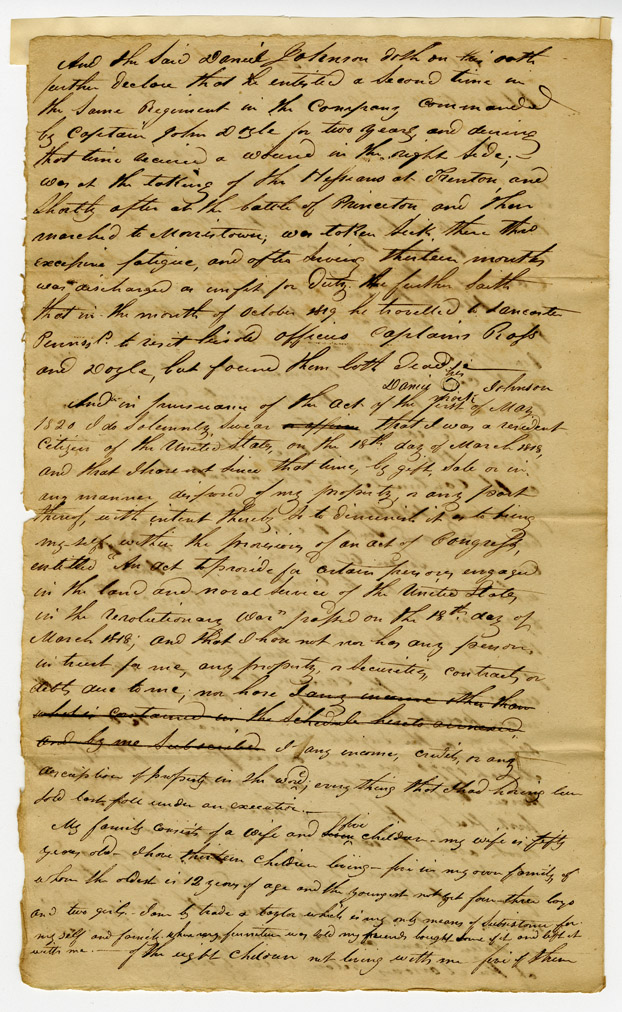 And the Said Daniel Johnson doth on his oath
further declare that he enlisted a second time in
the Same Regiment in the Company Commanded
by Captain John Doyle for two years, and during
that time received a wound in the right Side;
was at the taking of the Hessians at Trenton, and
Shortly after at the battle of Princeton and then
marched to Morristown; was taken Sick there thro
excessive fatigue, and after serving thirteen months
was discharged as unfit for Duty. He further Saith
that in the month of October 1819 he travelled to Lancaster
Pennsa. to visit his old officers Captains Ross
and Doyle, but found them both dead
his
Daniel Johnson
mark
And in pursuance of the act of the first of May
1820 I do Solemnly Swear or affirm that I was a resident
Citizen of the United States, on the 18th day of March 1818,
and that I have not since that time, by gift, Sale or in
any manner, disposed of my property, or any part
thereof, with intent thereby so to diminish it as to bring
myself within the provisions of an act of Congress,
entitled "An act to provide for certain persons engaged
in the land and naval Service of the United States
in the revolutionary War" passed on the 18th day of
March 1818; and that I have not nor has any person
in trust for me, any property, or Securities, contracts or
debts due to me; nor have I any income other than
what is contained in the Schedule hereto annexed,
and by me Subscribed I any income, credits, or any
description of property in the world; every thing that I had having been
Sold lately fell under an execution.
My family consists of a wife and five children - my wife is fifty
years old - I have thirteen children living - five in my own family, of
whom the oldest is 12 years of age and the youngest not yet four - three boys
and two girls. I am by trade a taylor which is my only means of Subsistence for
my self and family. When my furniture was Sold my friends bought Some of it and left it
with me. - of the eight Children not living with me five of them